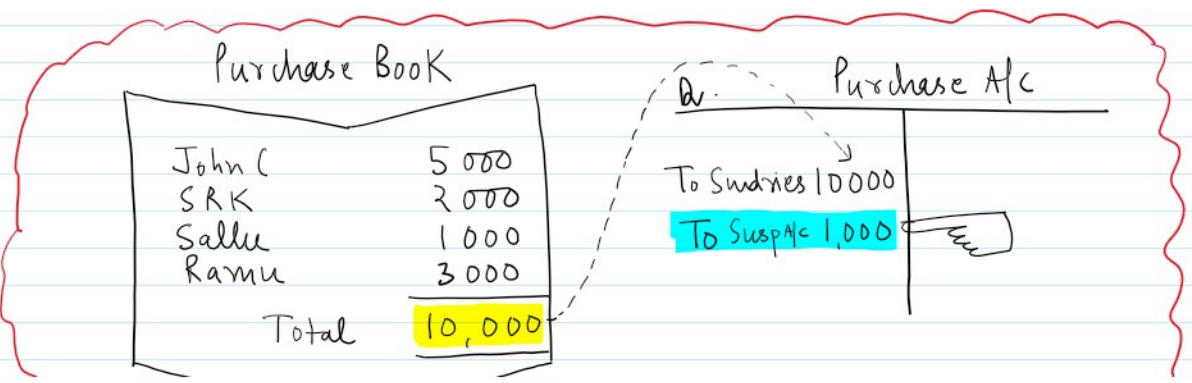 Purchase Book
John C 5000
SRK 2000
Sallu 1000
Ramu 3000
Total 10,000
Dr. Purchase A/c
To Sundries 10000
To Susp A/c 1,000